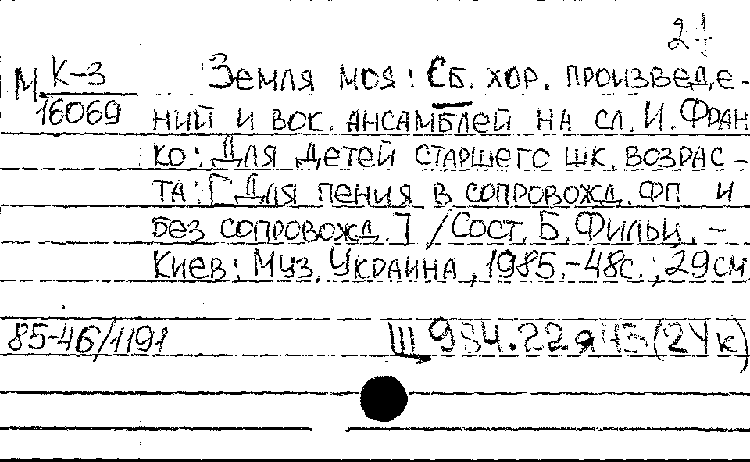 21
М К-3 Земля моя: Сб. хор. произведе-
16069 ний и вок. ансамблей на сл. И. Фран
ко: Для детей старшего шк. возрас-
та: [Для пения в сопровожд. фп и
без сопровожд.] / Сост. Б. Фильц. -
Киев: Муз. Украина, 1985.-48с.; 29см
85-46/1191 Щ 984.22я43(2Ук)